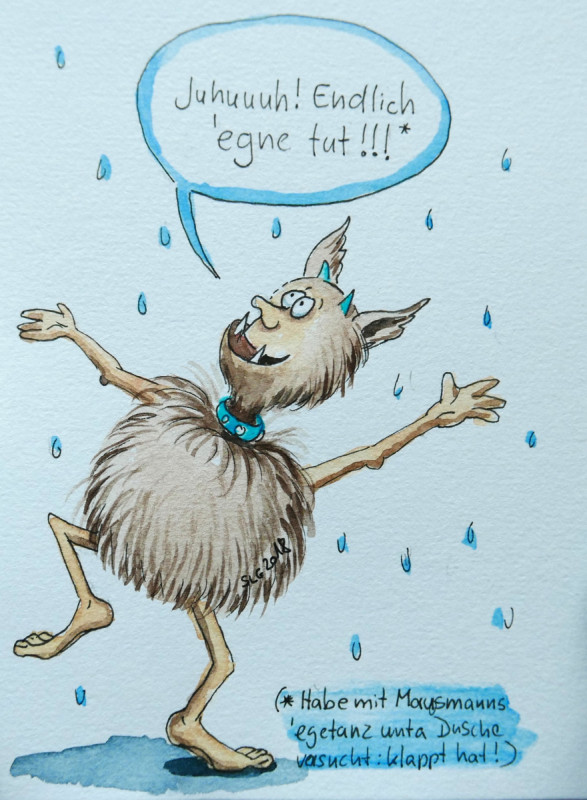 Juhuuuh! Endlich
'egne tut!!!*
SLG 2018
(* Habe mit Maysmanns
'egetanz unta Dusche
vasucht: klappt hat!)